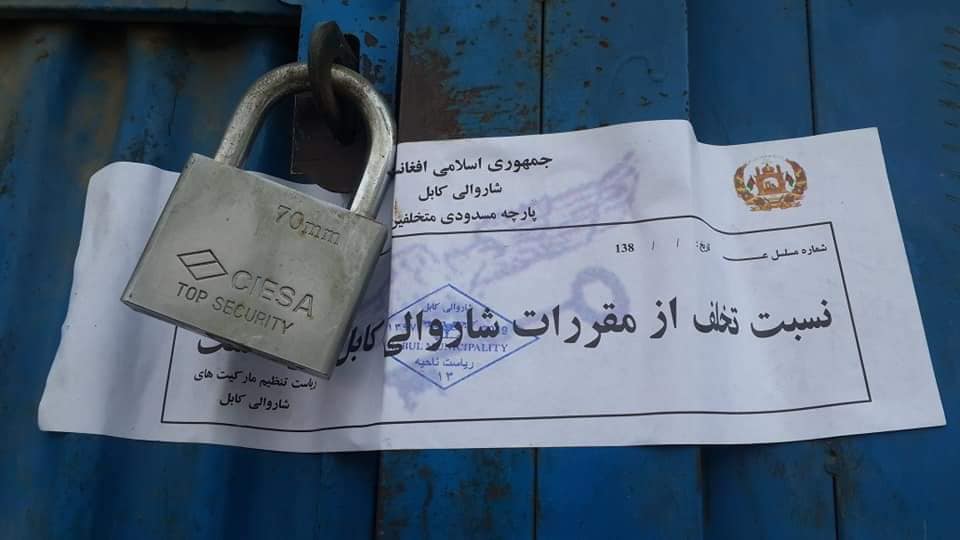 جمهوری اسلامی
شاروالی کابل
پارچه مسدودی متخلفین
شماره مسلسل
تاریخ: / / 138
نسبت تخلف از مقررات شاروالی کابل
ریاست تنظیم مارکیت های
شاروالی کابل
شاروالی کابل
KABUL MUNICIPALITY
ریاست ناحیه
۱۳
70mm
CIESA
TOP SECURITY